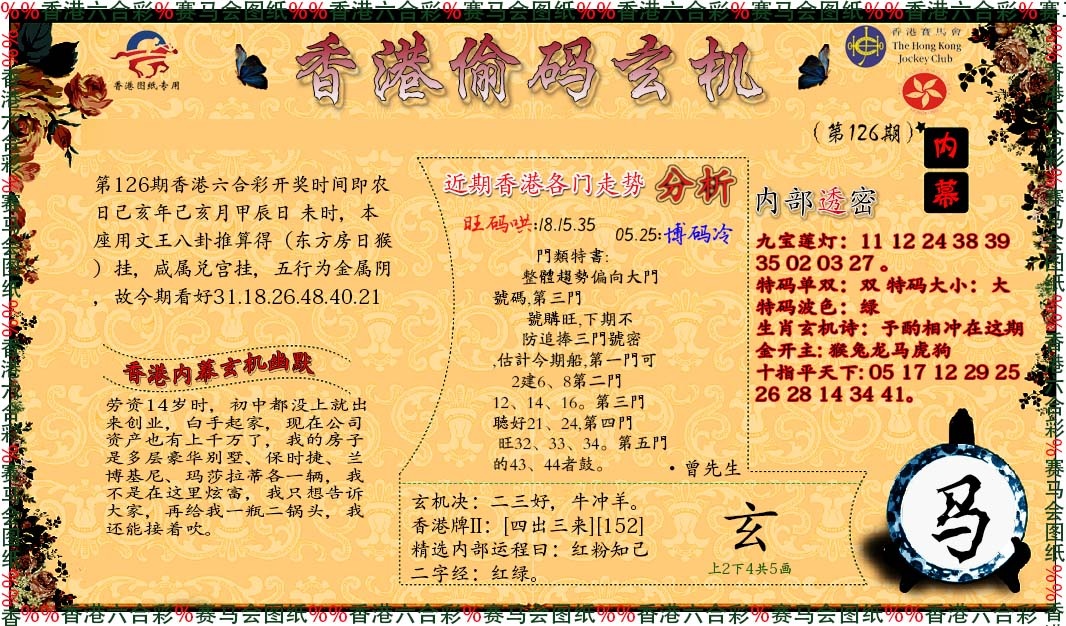 %%香港六合彩%赛马会图纸%%香港六合彩%赛马会图纸%%香港六合彩%赛马会图纸%%香港六合彩%赛
香港图纸专用
香港偷码玄机
香港賽馬會
The Hong Kong
Jockey Club
（第126期）
内
幕
第126期香港六合彩开奖时间即农
日己亥年己亥月甲辰日 未时，本
座用文王八卦推算得（东方房日猴
）挂，咸属兑宫挂，五行为金属阴
，故今期看好31.18.26.48.40.21
香港内幕玄机幽默
劳资14岁时，初中都没上就出
来创业，白手起家，现在公司
资产也有上千万了，我的房子
是多层豪华别墅、保时捷、兰
博基尼、玛莎拉蒂各一辆，我
不是在这里炫富，我只想告诉
大家，再给我一瓶二锅头，我
还能接着吹。
近期香港各门走势 分析
旺码哄:18.15.35
05.25:博码冷
門類特書:
整體趨勢偏向大門
號碼,第三門
號購旺,下期不
防追捧三門號密
,估計今期船,第一門可
2建6、8第二門
12、14、16。第三門
聽好21、24,第四門
旺32、33、34。第五門
的43、44者鼓。
·曾先生
玄机决：二三好，牛冲羊。
香港牌II：[四出三来][152]
精选内部运程曰：红粉知己
二字经：红绿。
玄
上2下4共5画
内部透密
九宝莲灯：11 12 24 38 39
35 02 03 27。
特码单双：双 特码大小：大
特码波色：绿
生肖玄机诗：予酌相冲在这期
金开主: 猴兔龙马虎狗
十指平天下: 05 17 12 29 25
26 28 14 34 41。
马
香%%香港六合彩%赛马会图纸%%香港六合彩%赛马会图纸%%香港六合彩%赛马会图纸%%香港六合彩%